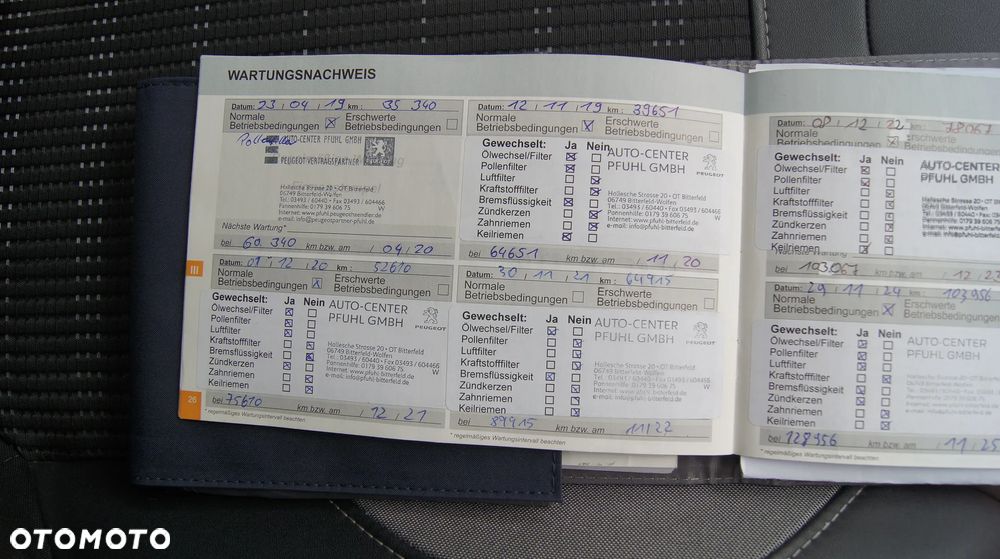 WARTUNGSNACHWEIS
Datum: 23 | 04 | 19 km: 35 340
Normale Betriebsbedingungen ☒ Erschwerte Betriebsbedingungen ☐
AUTO-CENTER PFUHL GMBH
PEUGEOT-VERTRAGSPARTNER
Hallesche Strasse 20 • OT Bitterfeld
06749 Bitterfeld-Wolfen
Tel.: 03493 / 60440 • Fax 03493 / 604466
Pannenhilfe: 0179 39 606 75
Nächste Wartung*
bei 60.340 km bzw. am / 04 / 20
Datum: 12 | 11 | 19 km: 39651
Normale Betriebsbedingungen ☒ Erschwerte Betriebsbedingungen ☐
Gewechselt: Ja Nein
Ölwechsel/Filter ☒ ☐
Pollenfilter ☒ ☐
Luftfilter ☐ ☒
Kraftstofffilter ☐ ☒
Bremsflüssigkeit ☒ ☐
Zündkerzen ☐ ☒
Zahnriemen ☐ ☒
Keilriemen ☒ ☐
AUTO-CENTER
PFUHL GMBH
PEUGEOT
Hallesche Strasse 20 • OT Bitterfeld
06749 Bitterfeld-Wolfen
Tel.: 03493 / 60440 • Fax 03493 / 604466
Pannenhilfe: 0179 39 606 75
Internet: www.pfuhl-bitterfeld.de
e-mail: info@pfuhl-bitterfeld.de
bei 64651 km bzw. am / 11 / 20
III
Datum: 01 | 12 | 20 km: 52610
Normale Betriebsbedingungen ☒ Erschwerte Betriebsbedingungen ☐
Gewechselt: Ja Nein
Ölwechsel/Filter ☒ ☐
Pollenfilter ☒ ☐
Luftfilter ☒ ☐
Kraftstofffilter ☐ ☒
Bremsflüssigkeit ☐ ☒
Zündkerzen ☒ ☐
Zahnriemen ☐ ☒
Keilriemen ☐ ☒
AUTO-CENTER
PFUHL GMBH
PEUGEOT
Hallesche Strasse 20 • OT Bitterfeld
06749 Bitterfeld-Wolfen
Tel.: 03493 / 60440 • Fax 03493 / 604466
Pannenhilfe: 0179 39 606 75
Internet: www.pfuhl-bitterfeld.de
e-mail: info@pfuhl-bitterfeld.de
bei 75610 km bzw. am / 12 / 21
* regelmäßiges Wartungsintervall beachten
26
Datum: 30 | 11 | 21 km: 64915
Normale Betriebsbedingungen ☐ Erschwerte Betriebsbedingungen ☐
Gewechselt: Ja Nein
Ölwechsel/Filter ☒ ☐
Pollenfilter ☐ ☒
Luftfilter ☐ ☒
Kraftstofffilter ☐ ☒
Bremsflüssigkeit ☒ ☐
Zündkerzen ☐ ☒
Zahnriemen ☐ ☒
Keilriemen ☐ ☒
AUTO-CENTER
PFUHL GMBH
PEUGEOT
Hallesche Strasse 20 • OT Bitterfeld
06749 Bitterfeld-Wolfen
Tel.: 03493 / 60440 • Fax 03493 / 604466
Pannenhilfe: 0179 39 606 75
Internet: www.pfuhl-bitterfeld.de
e-mail: info@pfuhl-bitterfeld.de
bei 89915 km bzw. am 11 / 22
* regelmäßiges Wartungsintervall beachten
Datum: 08 | 12 | 22 km: 78067
Normale Betriebsbedingungen ☒ Erschwerte Betriebsbedingungen
Gewechselt: Ja Nein
Ölwechsel/Filter
Pollenfilter
Luftfilter
Kraftstofffilter
Bremsflüssigkeit
Zündkerzen
Zahnriemen
Keilriemen
AUTO-CENTER
PFUHL GMBH
Nächste Wartung
bei 103067 km bzw. am / 12 / 23
Datum: 29 | 11 | 24 km: 103956
Normale Betriebsbedingungen ☒ Erschwerte Betriebsbedingungen
Gewechselt: Ja Nein
Ölwechsel/Filter
Pollenfilter
Luftfilter
Kraftstofffilter
Bremsflüssigkeit
Zündkerzen
Zahnriemen
Keilriemen
AUTO-CENTER
PFUHL GMBH
bei 128956 km bzw. am / 11 / 25
* regelmäßiges Wartungsintervall beachten
OTOMOTO